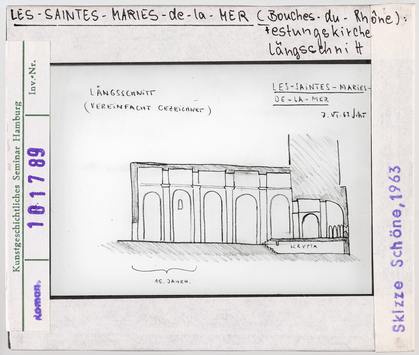 LES-SAINTES-MARIES-de-la-MER (Bouches-du-Rhône):
Festungskirche
Längsschnitt
Kunstgeschichtliches Seminar Hamburg
Inv.-Nr.
10 17 89
Roman.
LÄNGSSCHNITT
(VEREINFACHT GEZEICHNET)
LES-SAINTES-MARIES-
DE-LA-MER
KRYPTA
15. JAHRH.
Skizze Schöne, 1963